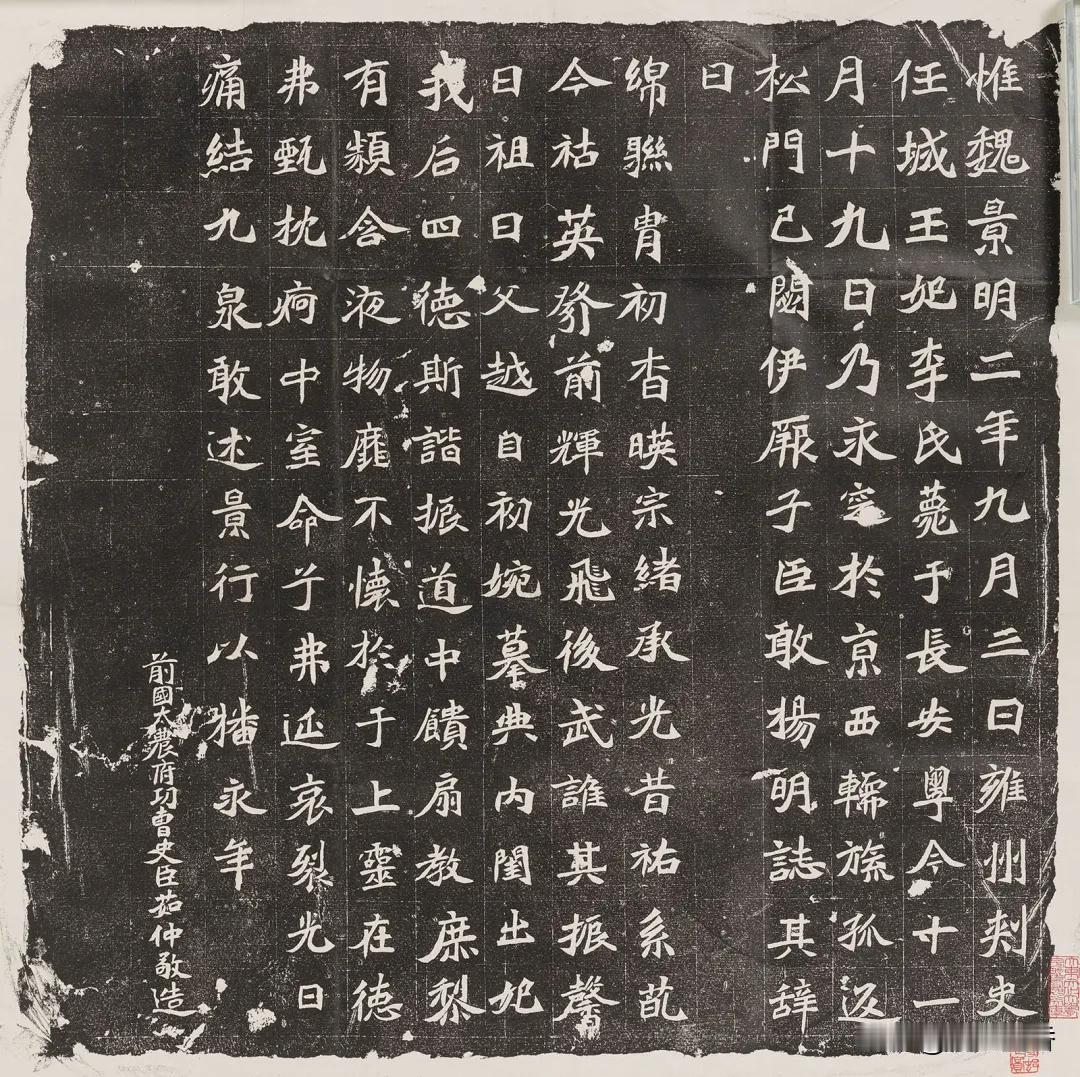 惟魏景明二年九月三日雍州刾史
任城王妃李氏薨于長安粵今十一
月十九日乃永窆於京西轜旐孤返
松門已闋伊厥子臣敢揚明誌其辞
曰
綿聮胄初杳暎宗緒承光昔祐系苽
今祜英發前輝光飛後武誰其振馨
曰祖曰父越自初婉墓典内閨出妃
我后四德斯諧振道中饋扇教庶黎
有類含液物靡不懷於于上靈在德
弗甄枕痾中室命兮弗延哀裂光日
痛結九泉敢述景行以播永年
前國大農府功曹史臣茹仲敬造